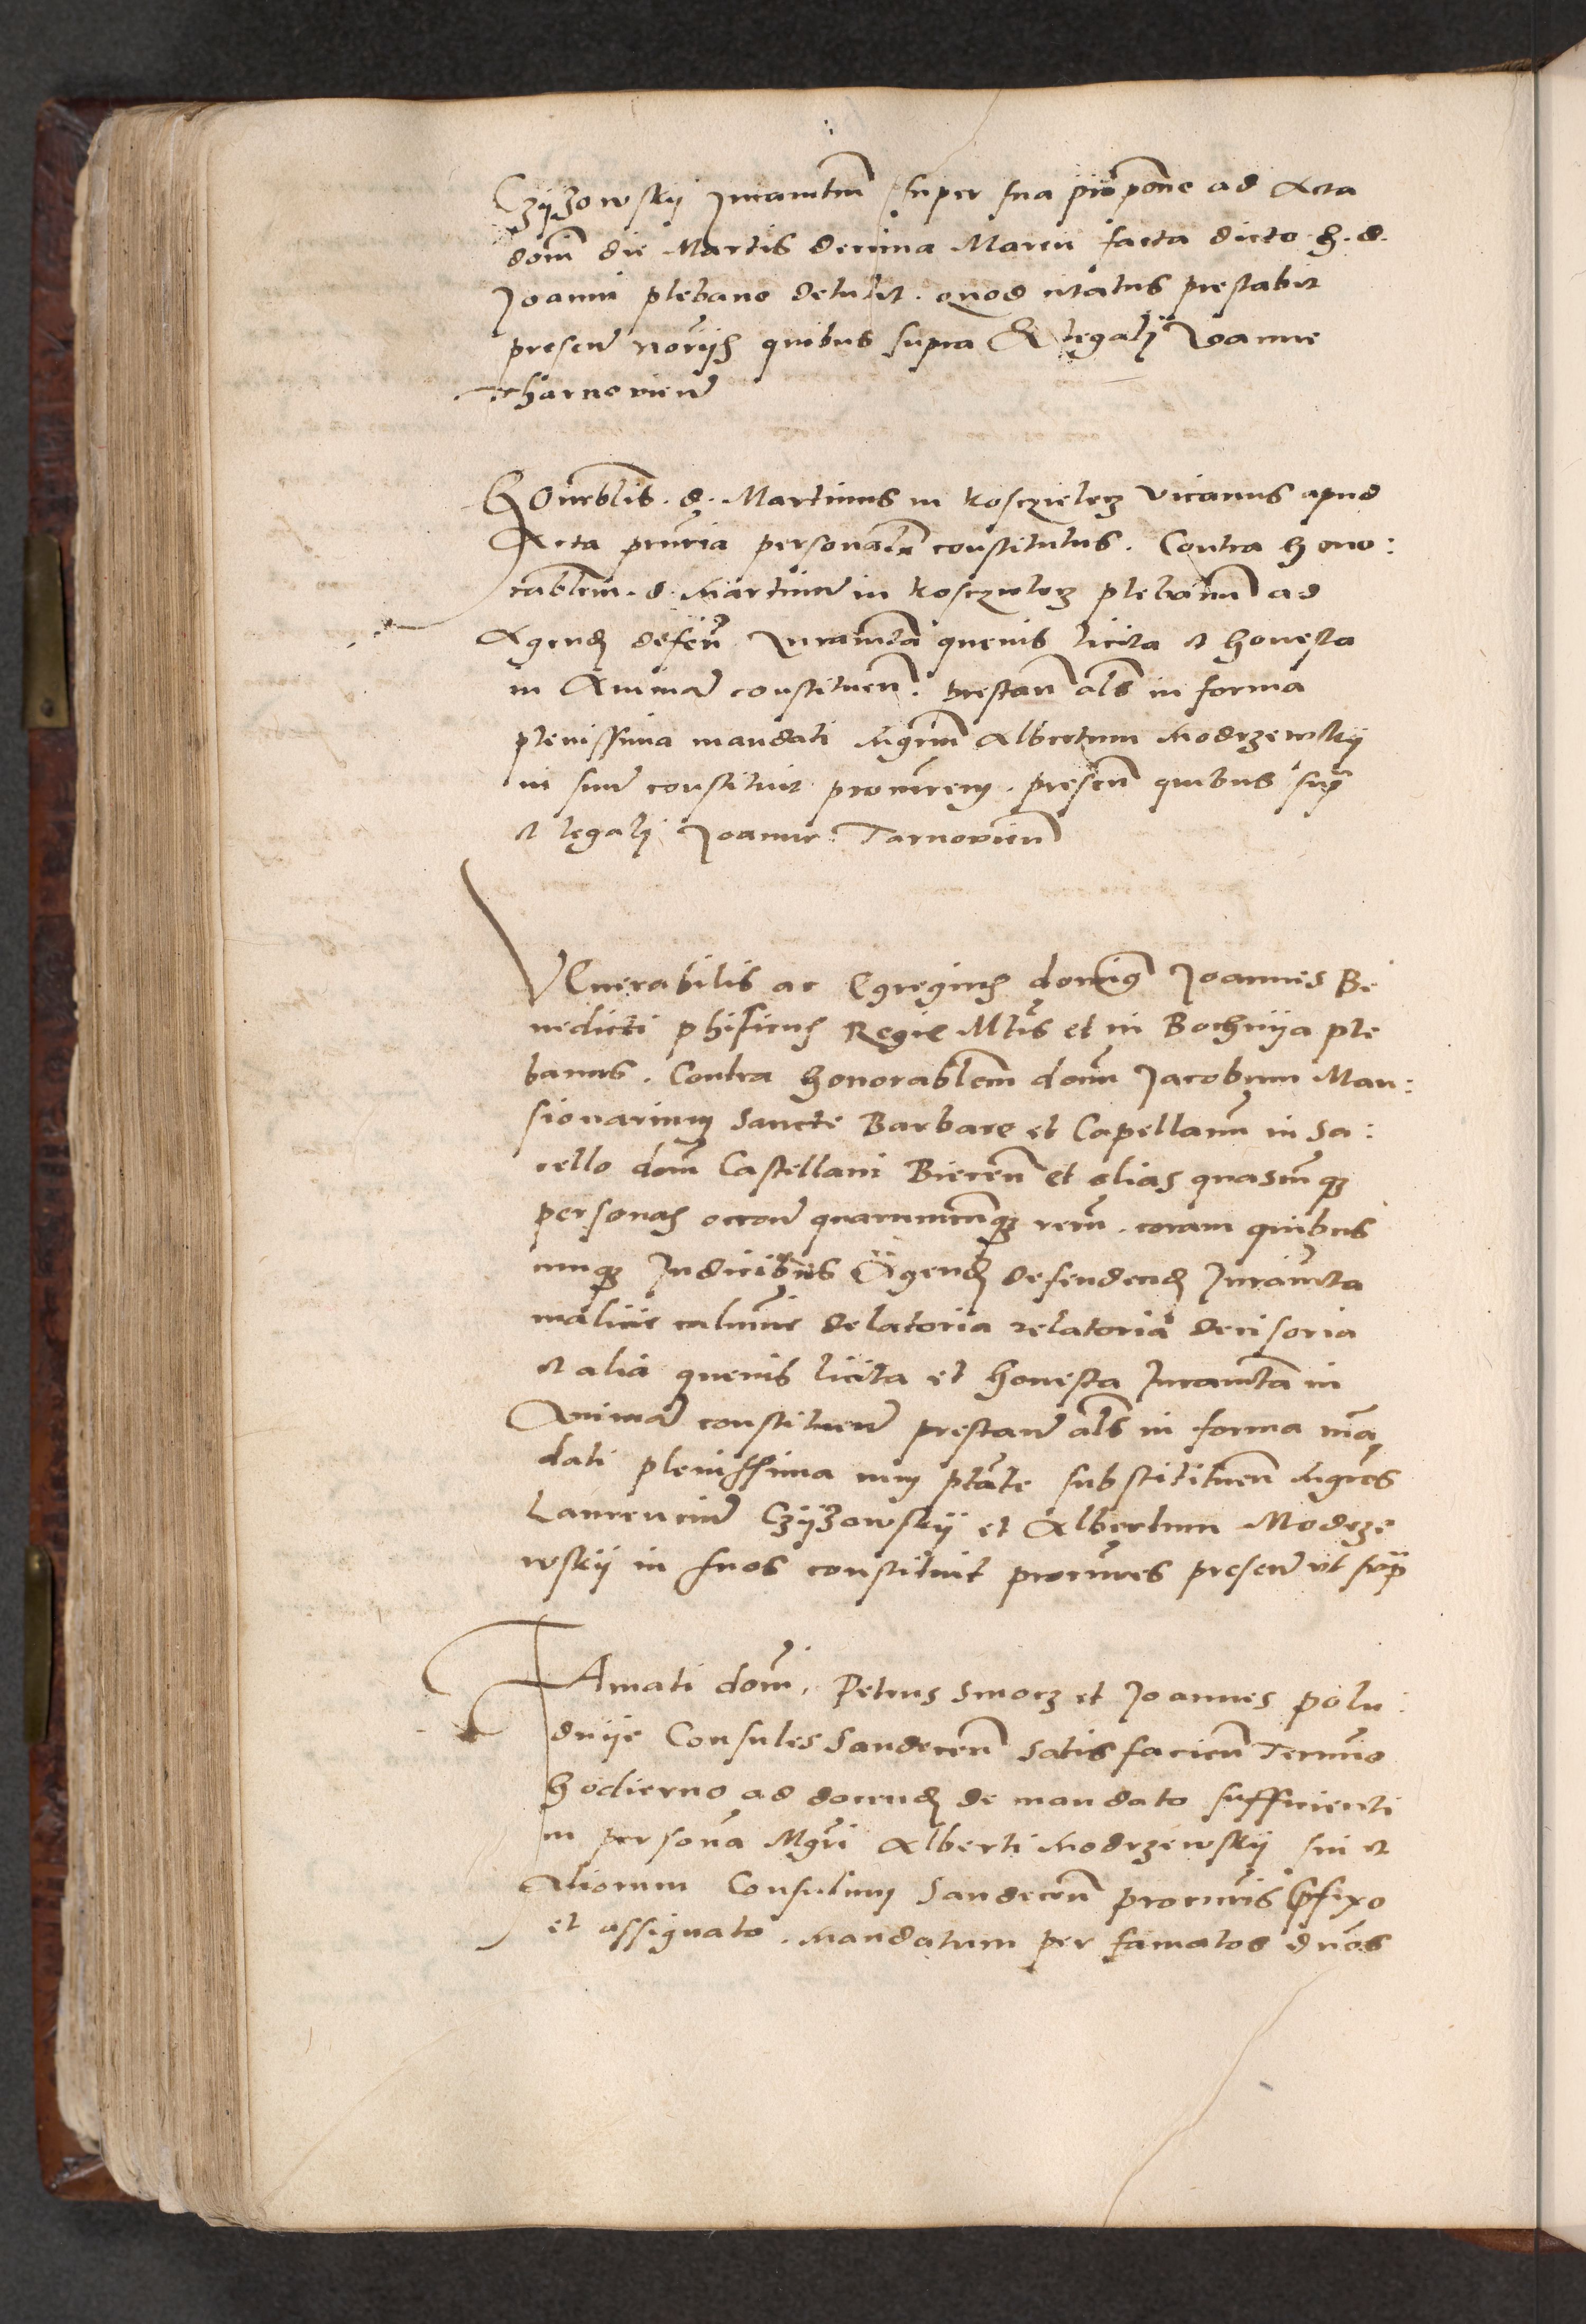 Czyzowsky Juramtum super sua propone ad Acta
dom die Martis decima Marcii facta dicto h. d.
Joanni plebano detulit. quod citatus prestabit
presen noriis quibus supra Et legali Joanne
Tharnovien
HOnorblis. d. Martinus in Kosczielecz vicarius apud
Acta prntia personalr constitutus. Contra hono:
rablem. d. Martinum in Kosczielecz plebanum ad
Agend defen Juramta quevis licita et honesta
in Animam constituen. prestan als in forma
plenissima mandati Mgrum Albertum Modrzewsky
in suum constituit procurem. presen quibus supra
et legali Joanne Tarnovien
VEnerabilis ac Egregius dominus Joannes Be
nedicti phisicus Regie Mtis et in Bochnya ple
banus. Contra honorablem dom Jacobum Man:
sionarium Sancte Barbare et Capellanum in Sa:
cello dom Castellani Biecen et alias quascumque
personas occone quarumcumque rerum. coram quibus
cumque Judicibus Agend defendend Juramta
malicie calumnie delatoria relatoria decisoria
et alia quevis licita et honesta Juramta in
Animam constituen prestan als in forma man
dati plenissima cum ptate substituen Mgros
Laurencium Czyzowsky et Albertum Modrze
wsky in suos constituit procures presen ut supra
FAmati domi. Petrus Smocz et Joannes polu
dnye Consules Sandecen Satisfacien Termino
hodierno ad docend de mandato sufficienti
in persona Mgri Alberti Modrzewsky sui et
Aliorum Consulum Sandecen procuris prefixo
et assignato. Mandatum per famatos dnos